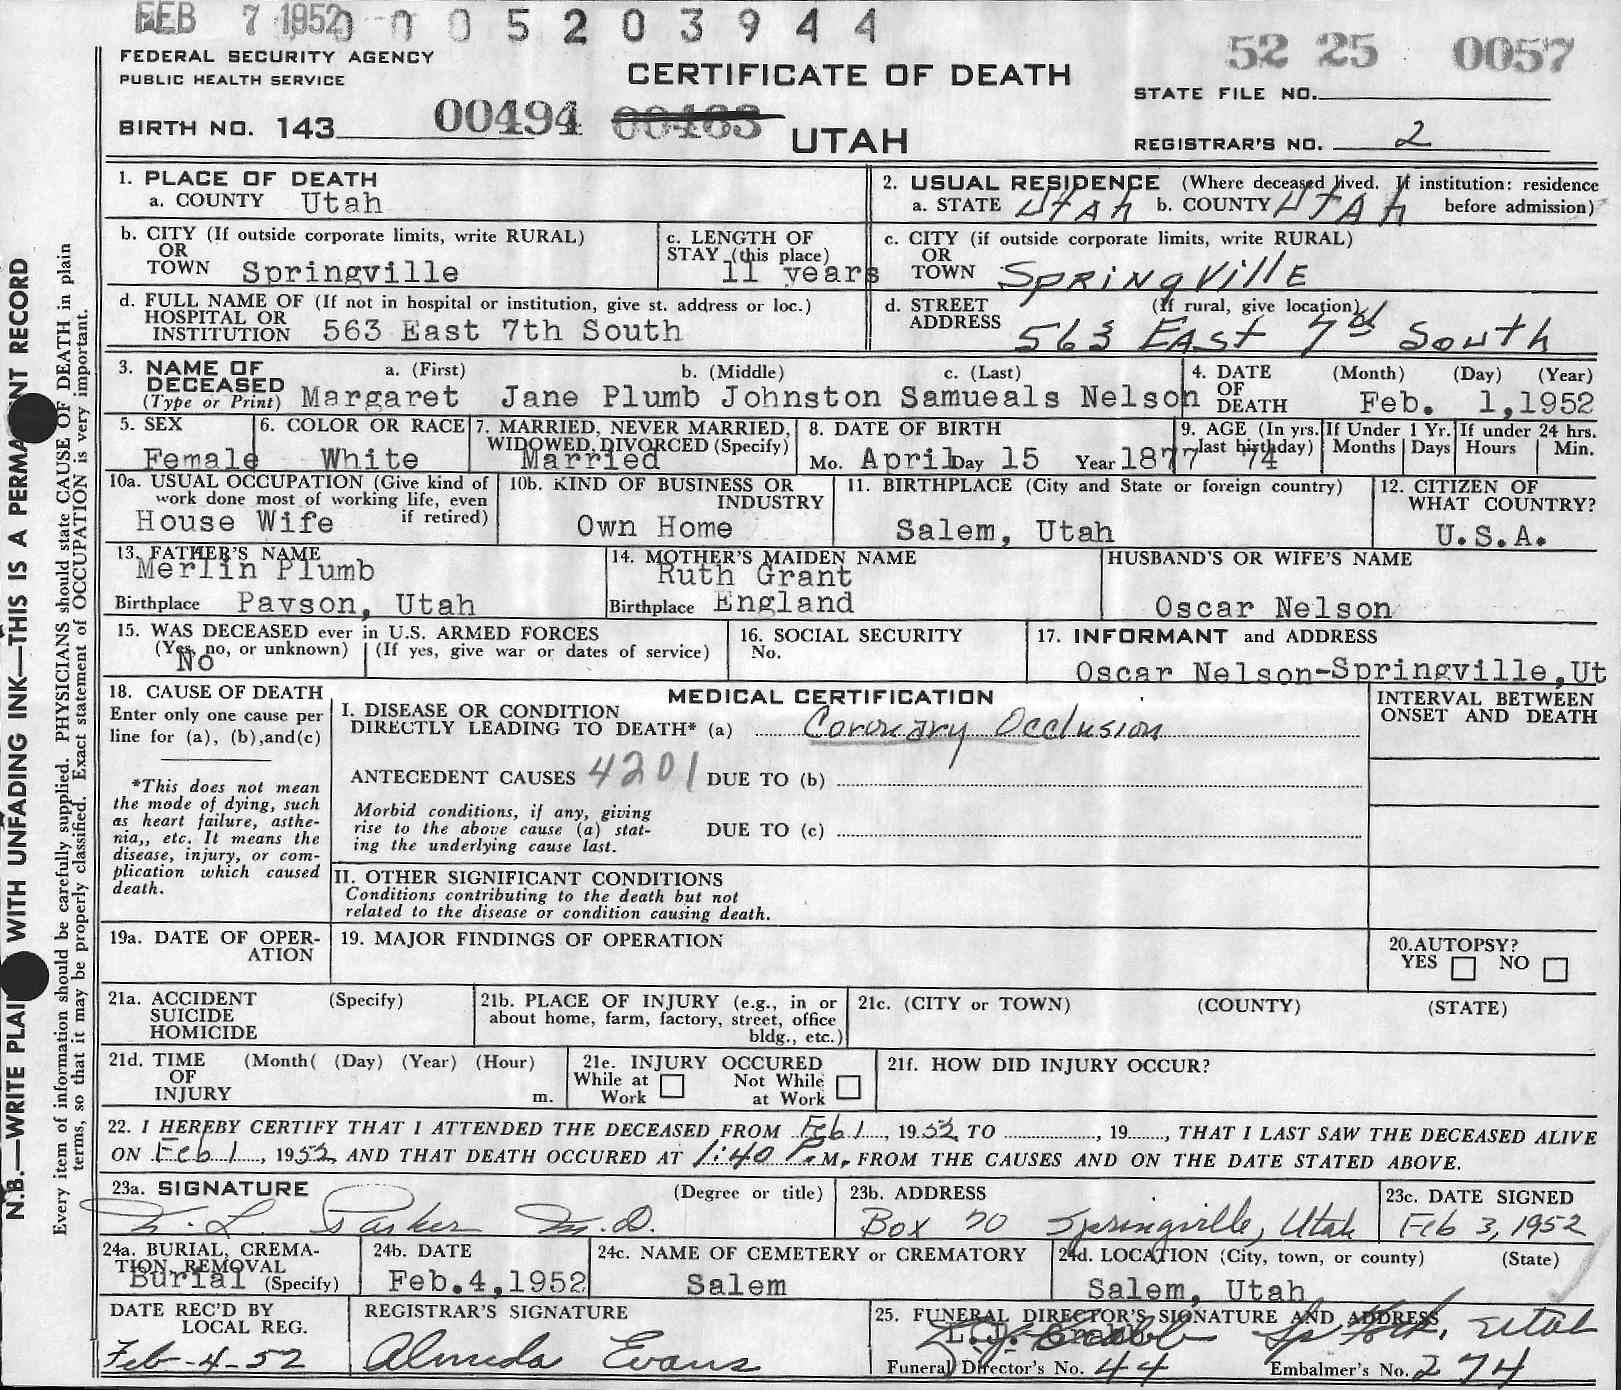 FEB 7 1952 0 0 5 2 0 3 9 4 4
FEDERAL SECURITY AGENCY
PUBLIC HEALTH SERVICE
CERTIFICATE OF DEATH
52 25 0057
STATE FILE NO.
BIRTH NO. 143 00494 00483 UTAH
REGISTRAR'S NO. 2
1. PLACE OF DEATH
a. COUNTY Utah
2. USUAL RESIDENCE (Where deceased lived. If institution: residence
a. STATE Utah b. COUNTY Utah before admission)
b. CITY (If outside corporate limits, write RURAL)
OR
TOWN Springville
c. LENGTH OF
STAY (this place)
11 years
c. CITY (if outside corporate limits, write RURAL)
OR
TOWN Springville
d. FULL NAME OF (If not in hospital or institution, give st. address or loc.)
HOSPITAL OR
INSTITUTION 563 East 7th South
d. STREET (If rural, give location)
ADDRESS 563 East 7th South
3. NAME OF a. (First) b. (Middle) c. (Last)
DECEASED
(Type or Print) Margaret Jane Plumb Johnston Samueals Nelson
4. DATE (Month) (Day) (Year)
OF
DEATH Feb. 1,1952
5. SEX
Female
6. COLOR OR RACE
White
7. MARRIED, NEVER MARRIED,
WIDOWED, DIVORCED (Specify)
Married
8. DATE OF BIRTH
Mo. April Day 15 Year 1877
9. AGE (In yrs.
last birthday) 74
If Under 1 Yr.
Months Days
If under 24 hrs.
Hours Min.
10a. USUAL OCCUPATION (Give kind of
work done most of working life, even
House Wife if retired)
10b. KIND OF BUSINESS OR
INDUSTRY
Own Home
11. BIRTHPLACE (City and State or foreign country)
Salem, Utah
12. CITIZEN OF
WHAT COUNTRY?
U.S.A.
13. FATHER'S NAME
Merlin Plumb
Birthplace Payson, Utah
14. MOTHER'S MAIDEN NAME
Ruth Grant
Birthplace England
HUSBAND'S OR WIFE'S NAME
Oscar Nelson
15. WAS DECEASED ever in U.S. ARMED FORCES
(Yes, no, or unknown) (If yes, give war or dates of service)
No
16. SOCIAL SECURITY
No.
17. INFORMANT and ADDRESS
Oscar Nelson-Springville,Ut
18. CAUSE OF DEATH
Enter only one cause per
line for (a), (b),and(c)
*This does not mean
the mode of dying, such
as heart failure, asthe-
nia,, etc. It means the
disease, injury, or com-
plication which caused
death.
MEDICAL CERTIFICATION
I. DISEASE OR CONDITION
DIRECTLY LEADING TO DEATH* (a) Coronary Occlusion
ANTECEDENT CAUSES 4201 DUE TO (b)
Morbid conditions, if any, giving
rise to the above cause (a) stat-
ing the underlying cause last.
DUE TO (c)
II. OTHER SIGNIFICANT CONDITIONS
Conditions contributing to the death but not
related to the disease or condition causing death.
INTERVAL BETWEEN
ONSET AND DEATH
19a. DATE OF OPER-
ATION
19. MAJOR FINDINGS OF OPERATION
20.AUTOPSY?
YES NO
21a. ACCIDENT (Specify)
SUICIDE
HOMICIDE
21b. PLACE OF INJURY (e.g., in or
about home, farm, factory, street, office
bldg., etc.)
21c. (CITY or TOWN) (COUNTY) (STATE)
21d. TIME (Month( (Day) (Year) (Hour)
OF
INJURY m.
21e. INJURY OCCURED
While at Not While
Work at Work
21f. HOW DID INJURY OCCUR?
22. I HEREBY CERTIFY THAT I ATTENDED THE DECEASED FROM Feb 1, 1952 TO , 19 , THAT I LAST SAW THE DECEASED ALIVE
ON Feb 1, 1952 AND THAT DEATH OCCURED AT 1:40 P.M, FROM THE CAUSES AND ON THE DATE STATED ABOVE.
23a. SIGNATURE (Degree or title)
Parker M.D.
23b. ADDRESS
Box 70 Springville, Utah
23c. DATE SIGNED
Feb 3, 1952
24a. BURIAL, CREMA-
TION, REMOVAL
Burial (Specify)
24b. DATE
Feb.4,1952
24c. NAME OF CEMETERY or CREMATORY
Salem
24d. LOCATION (City, town, or county) (State)
Salem, Utah
DATE REC'D BY
LOCAL REG.
Feb-4-52
REGISTRAR'S SIGNATURE
Almeda Evans
25. FUNERAL DIRECTOR'S SIGNATURE AND ADDRESS
Sp Fork, Utah
Funeral Director's No. 44 Embalmer's No. 274
N.B.—WRITE PLAI WITH UNFADING INK—THIS IS A PERMA NT RECORD
Every item of information should be carefully supplied. PHYSICIANS should state CAUSE OF DEATH in plain
terms, so that it may be properly classified. Exact statement of OCCUPATION is very important.